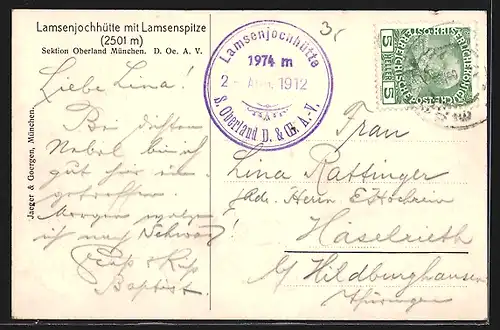 Lamsenjochhütte mit Lamsenspitze
(2501 m)
Sektion Oberland München. D. Oe. A. V.
Jaeger & Goergen, München.
Liebe Lina!
Bei dichtem
Nebel bin ich
gut hier ein-
getroffen.
Morgen
ich nach Schwaz!
Gruß & Kuß
Baptist
Lamsenjochhütte
1974 m
2 - Aug. 1912
S. Oberland D. & Œ. A.-V.
5 HELLER 5
Frau
Lina Rattinger
Adr. Herrn E. Hochrein
Häselrieth
b/ Hildburghausen
Thüringen